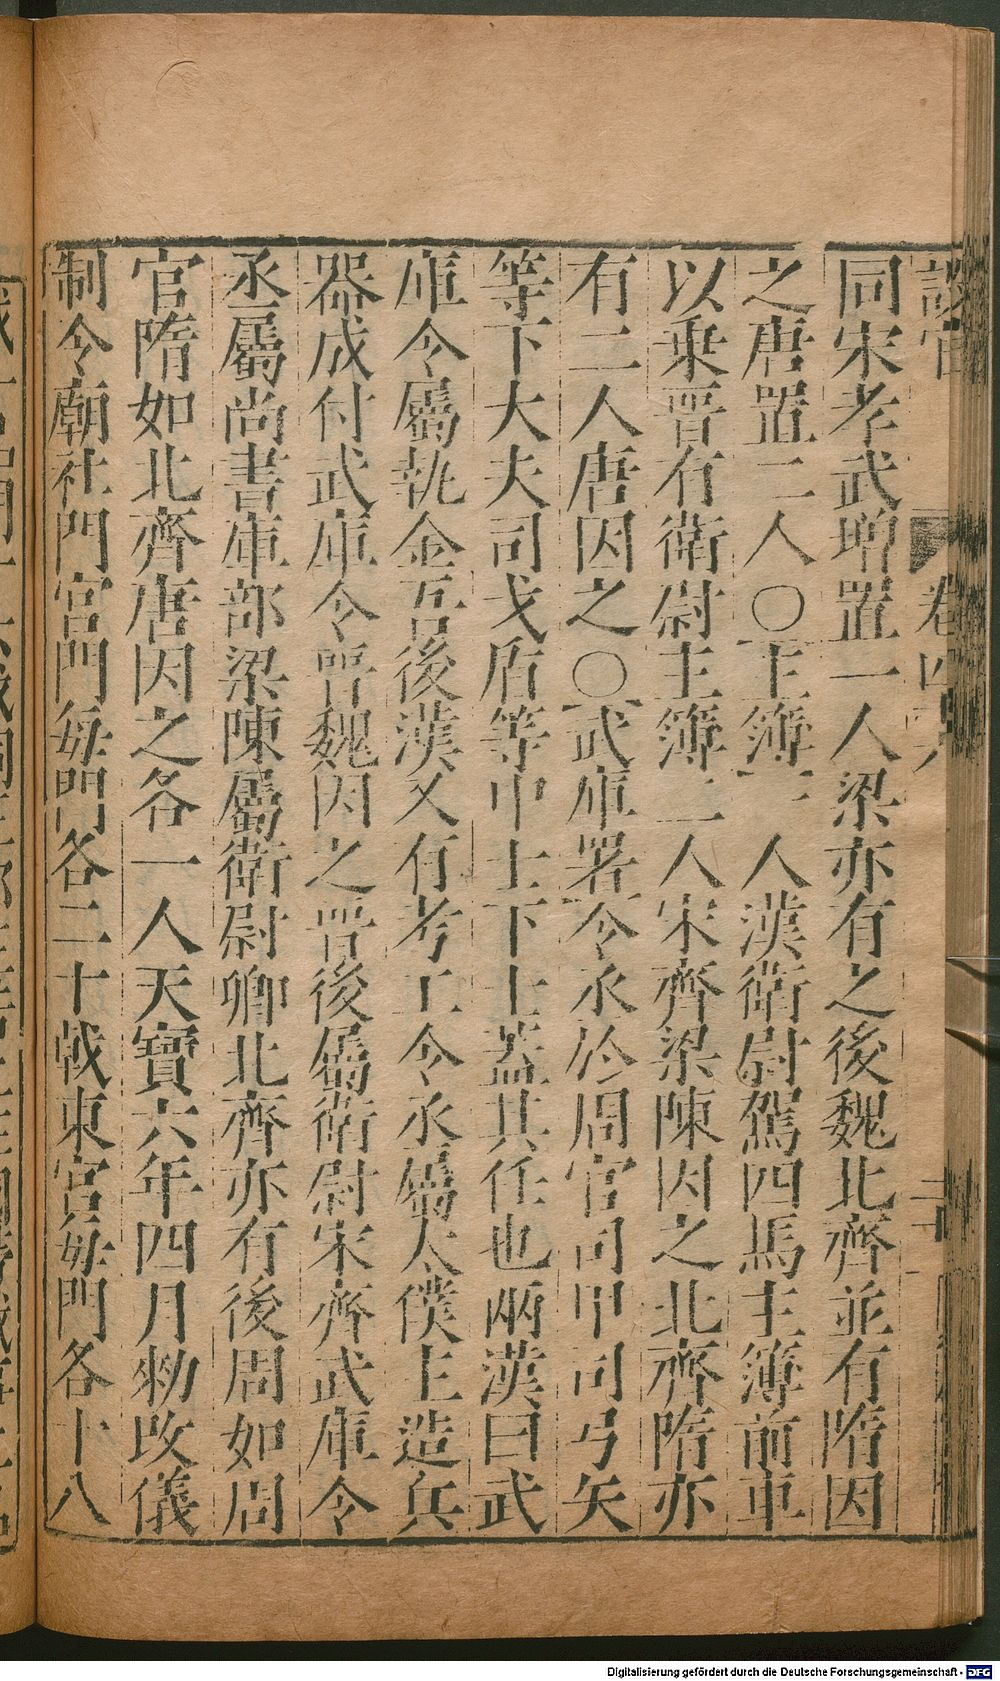 卷四
同宋孝武增置一人梁亦有之後魏北齊並有隋因
之唐置二人○主簿二人漢衛尉駕四馬主簿前車
以乗晋有衛尉主簿二人宋齊梁陳因之北齊隋亦
有二人唐因之○武庫署令丞於周官司甲司弓矢
等下大夫司戈盾等中士下士蓋其任也兩漢曰武
庫令屬執金吾後漢又有考工令丞屬太僕主造兵
器成付武庫令曹魏因之晋後屬衛尉宋齊武庫令
丞屬尚書庫部梁陳屬衛尉卿北齊亦有後周如周
官隋如北齊唐因之各一人天寶六年四月勑改儀
制令廟社門宫門每門各二十戟東宫每門各十八
Digitalisierung gefördert durch die Deutsche Forschungsgemeinschaft - DFG